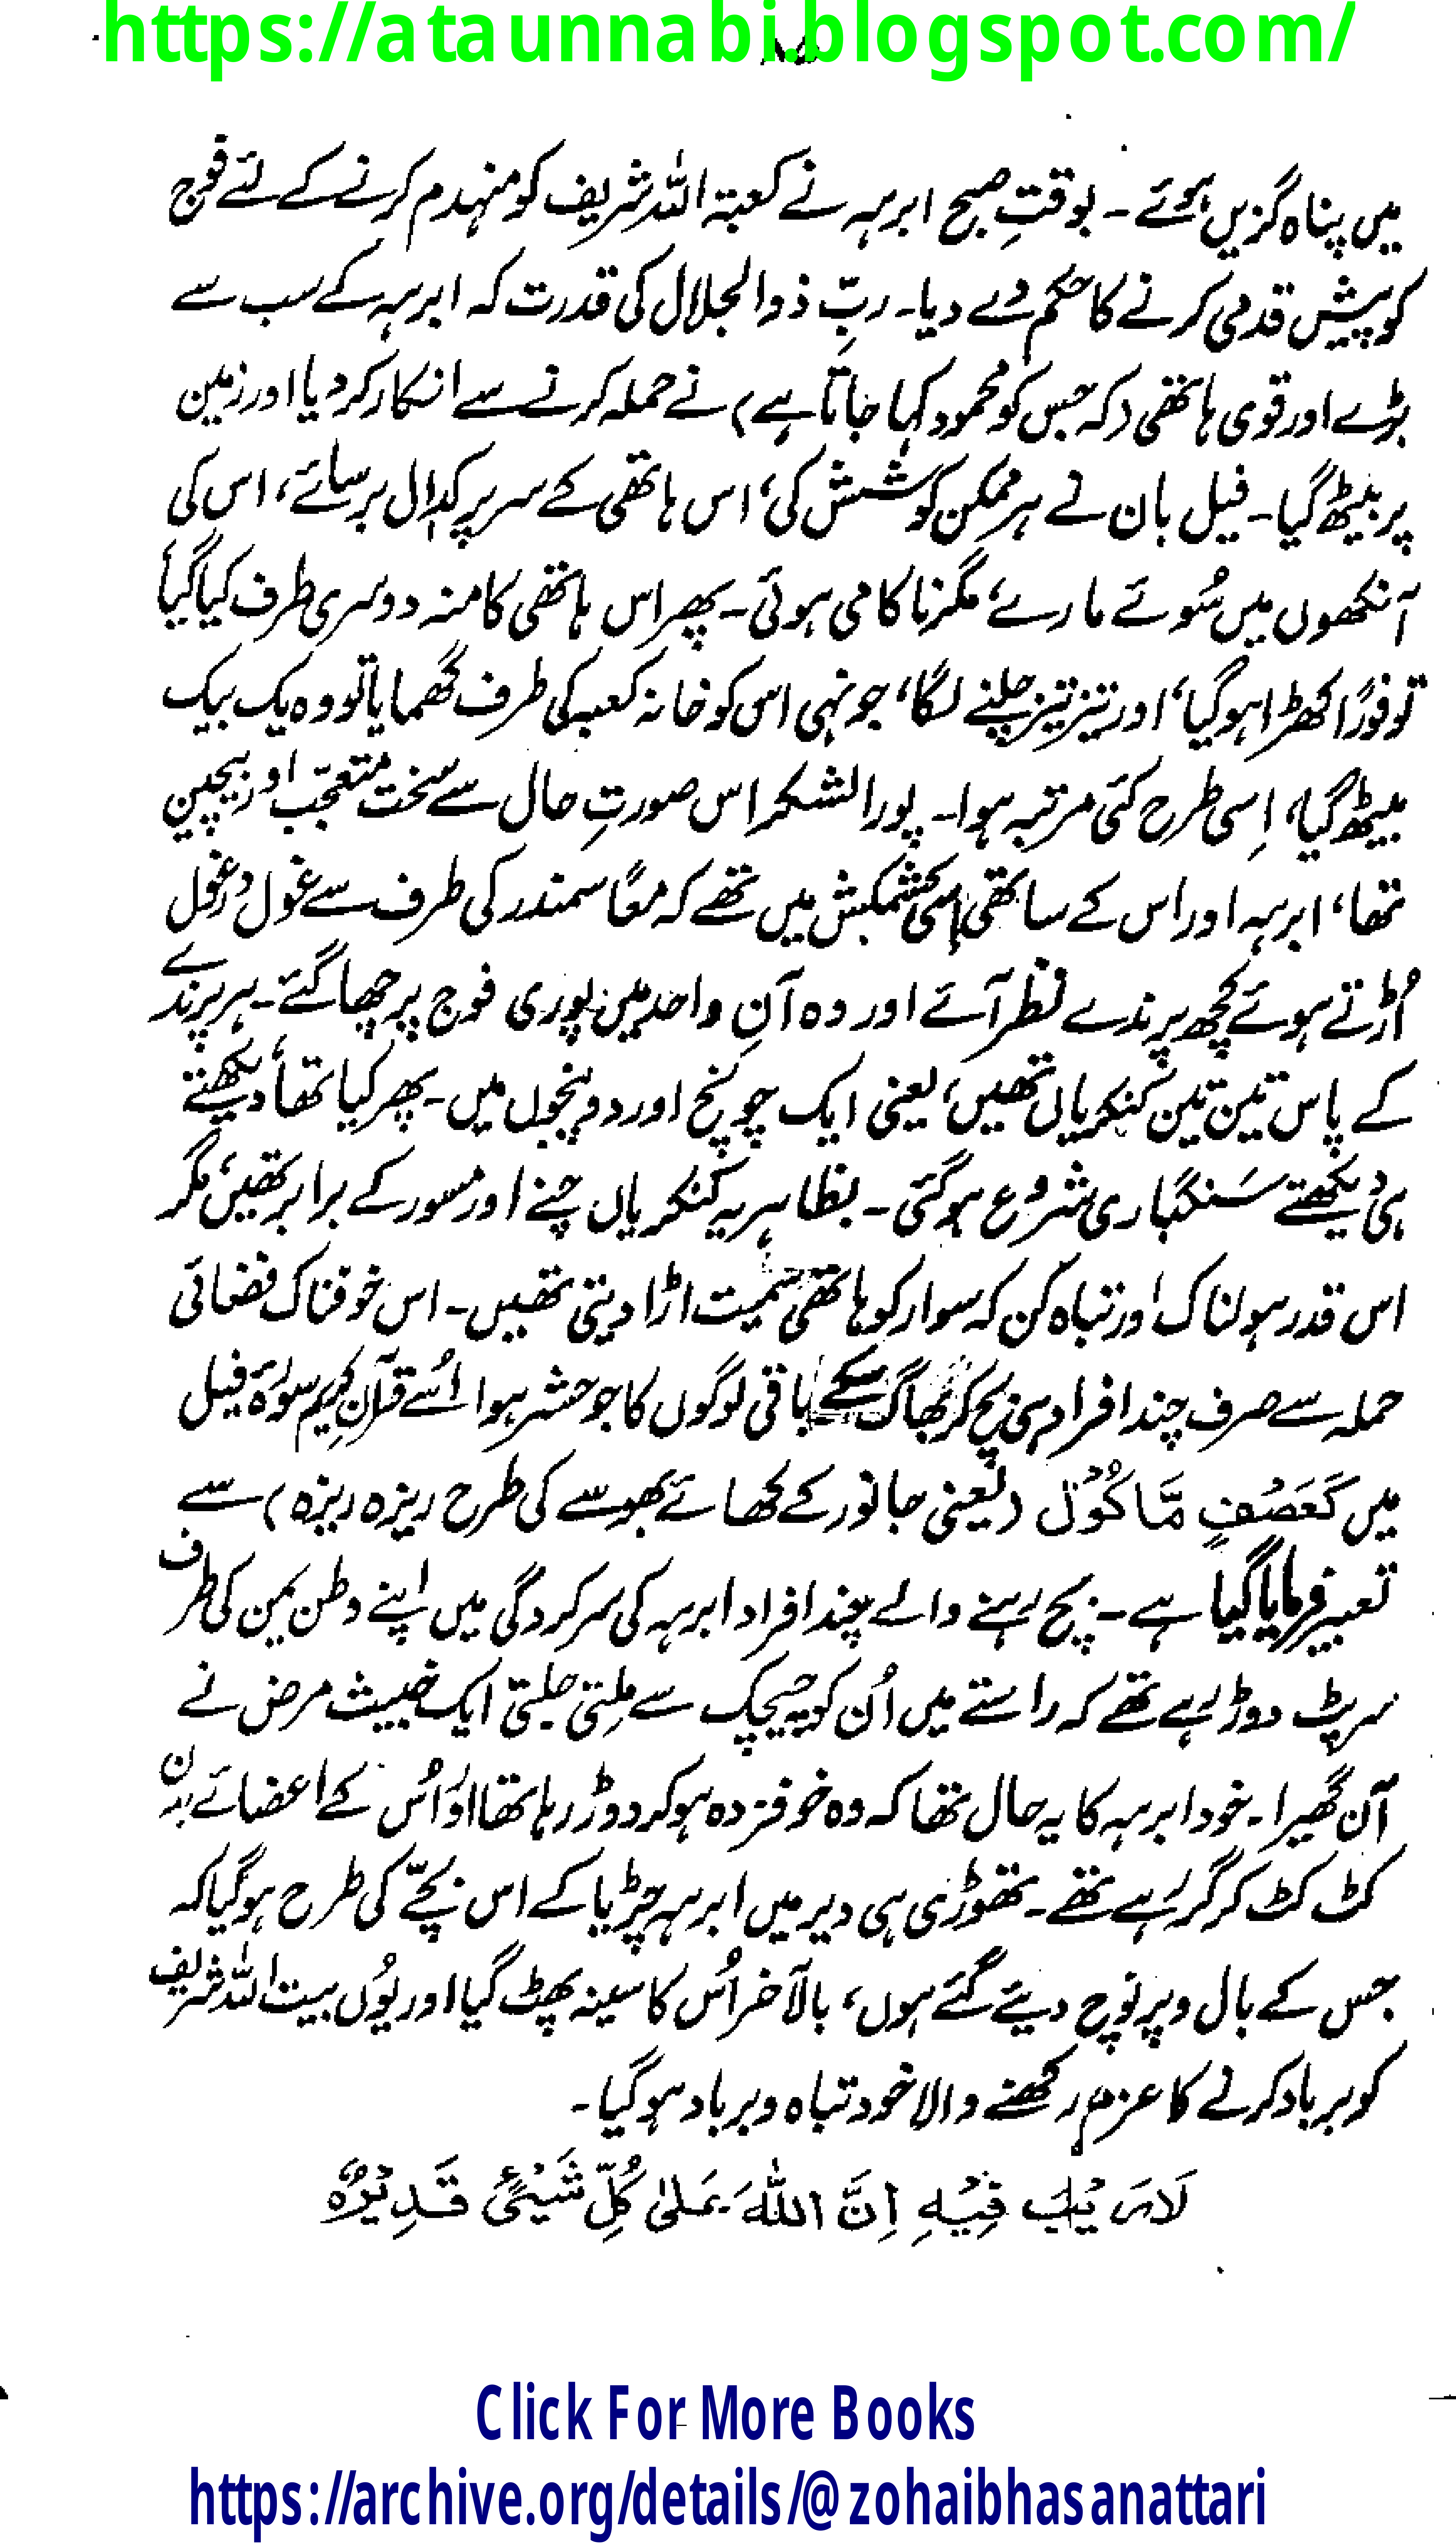 https://ataunnabi.blogspot.com/
میں پناہ گزیں ہوئے ۔ بوقتِ صبح ابرہہ نے کعبۃ اللہ شریف کو منہدم کرنے کے لئے فوج
کو پیش قدمی کرنے کا حکم دے دیا۔ ربِّ ذوالجلال کی قدرت کہ ابرہہ کے سب سے
بڑے اور قوی ہاتھی (کہ جس کو محمود کہا جاتا ہے) نے حملہ کرنے سے انکار کر دیا اور زمین
پر بیٹھ گیا۔ فیل بان نے ہر ممکن کوشش کی، اس ہاتھی کے سر پر کدال برسائے، اس کی
آنکھوں میں سُوئے مارے، مگر ناکامی ہوئی۔ پھر اس ہاتھی کا منہ دوسری طرف کیا گیا
تو فورًا کھڑا ہو گیا، اور تیز تیز چلنے لگا، جونہی اس کو خانہ کعبہ کی طرف گھمایا تو وہ یک بیک
بیٹھ گیا، اِسی طرح کئی مرتبہ ہوا۔ پورا لشکر اس صورتِ حال سے سخت متعجّب اور بیچین
تھا، ابرہہ اور اس کے ساتھی اِسی کشمکش میں تھے کہ معًا سمندر کی طرف سے غول در غول
اُڑتے ہوئے کچھ پرندے نظر آئے اور وہ آنِ واحد میں پوری فوج پر چھا گئے۔ ہر پرندے
کے پاس تین تین کنکریاں تھیں، یعنی ایک چونچ اور دو پنجوں میں۔ پھر کیا تھا، دیکھتے
ہی دیکھتے سَنگباری شروع ہو گئی۔ بظاہر یہ کنکریاں چنے اور مسور کے برابر تھیں، مگر
اس قدر ہولناک اور تباہ کن کہ سوار کو ہاتھی سمیت اڑا دیتی تھیں۔ اس خوفناک فضائی
حملہ سے صرف چند افراد ہی بچ کر بھاگ سکے باقی لوگوں کا جو حشر ہوا اُسے قرآنِ کریم سورۂ فیل
میں کَعَصْفٍ مَّاكُوْل (یعنی جانور کے کھائے بھوسے کی طرح ریزہ ریزہ) سے
تعبیر فرمایا گیا ہے۔ بچ رہنے والے چند افراد ابرہہ کی سرکردگی میں اپنے وطن یمن کی طرف
سرپٹ دوڑ رہے تھے کہ راستے میں اُن کو چیچک سے مِلتی جلتی ایک خبیث مرض نے
آن گھیرا۔ خود ابرہہ کا یہ حال تھا کہ وہ خوفزدہ ہو کر دوڑ رہا تھا اور اُس کے اعضائے بدن
کٹ کٹ کر گر رہے تھے۔ تھوڑی ہی دیر میں ابرہہ چڑیا کے اس بچّے کی طرح ہو گیا کہ
جس کے بال و پر نوچ دیئے گئے ہوں، بالآخر اُس کا سینہ پھٹ گیا اور یوُں بیت اللہ شریف
کو برباد کرنے کا عزم رکھنے والا خود تباہ و برباد ہو گیا۔
لَارَيْبَ فِيْهِ اِنَّ اللّٰهَ عَلٰى كُلِّ شَيْئٍ قَدِيْرٌ ه
Click For More Books
https://archive.org/details/@zohaibhasanattari